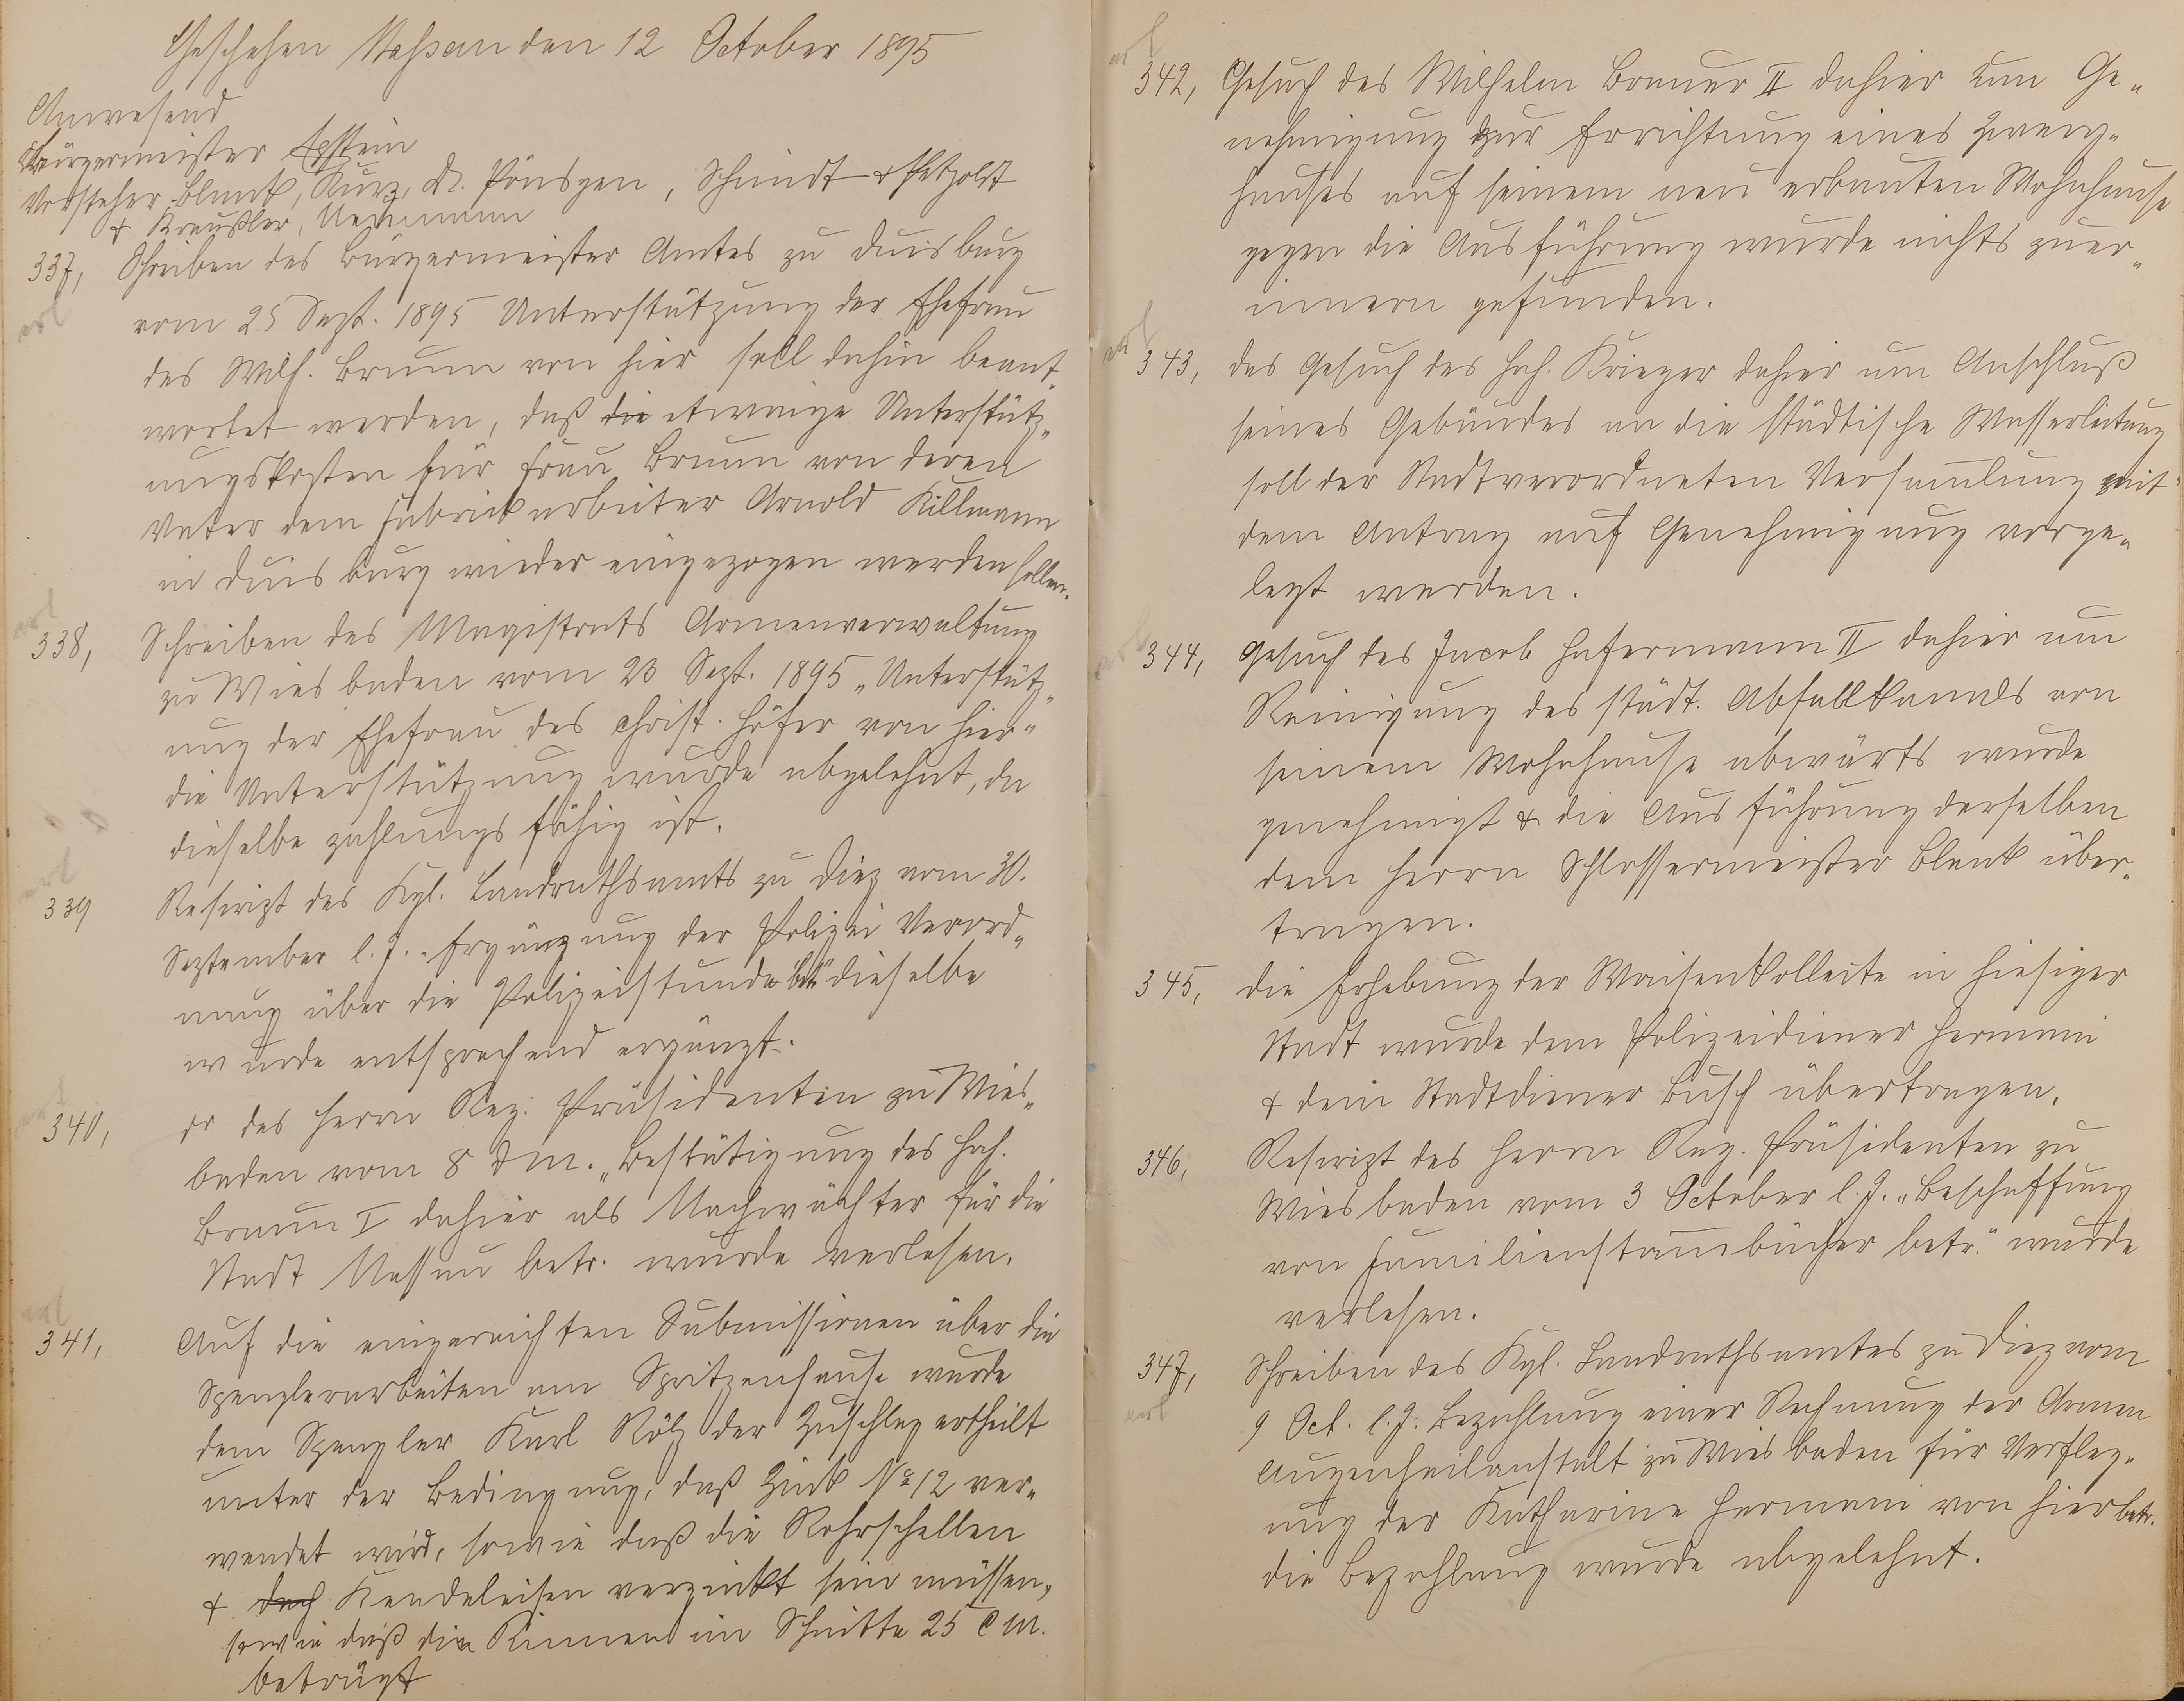 Geschehen Nassau den 12 October 1895
Anwesend
Bürgermeister Epstein
Vorsteher Blank, Kurz, Dr. Pönsgen, Schmidt & Petzoldt
& Kreußler, Unzmann
337, Schreiben des Bürgermeister Amtes zu Duisburg
erl
vom 25 Sept. 1895 Unterstützung der Ehefrau
des Wilh. Braun von hier soll dahin beant-
wortet werden, daß die etwaige Unterstütz-
ungskosten für Frau Braun von deren
Vater dem Fabrickarbeiter Arnold Killmann
in Duisburg wieder eingezogen werden sollen.
erl
338, Schreiben des Magistrats Armenverwaltung
zu Wiesbaden vom 23 Sept. 1895 „Unterstütz-
ung der Ehefrau des Christ. Höfer von hier"
die Unterstützung wurde abgelehnt, da
dieselbe zahlungsfähig ist.
erl
339 Rescript des Kgl. Landrathsamts zu Diez vom 30.
September l. J. „Ergänzung der Polizei Verord-
nung über die Polizeistunde btr" dieselbe
wurde entsprechend ergänzt.
erl
340, do des Herrn Reg. Präsidenten zu Wies-
baden vom 8 d m. „Bestätigung des Hch.
Braun I dahier als Nachwächter für die
Stadt Nassau betr. wurde verlesen.
erl
341, Auf die eingereichten Submissionen über die
Spenglerarbeiten am Spritzenhause wurde
dem Spengler Karl Rölz der Zuschlag ertheilt
unter der Bedingung, daß Zink No 12 ver-
wendet wird, sowie daß die Rohrschellen
& doch Kendeleisen verzinkt sein müssen,
sowie daß die Rinnen im Schnitte 25 cm.
beträgt
erl
342, Gesuch des Wilhelm Braun II dahier um Ge-
nehmigung zur Errichtung eines Zwerg-
hauses auf seinem neu erbauten Wohnhause
gegen die Ausführung wurde nichts zu er-
innern gefunden.
erl
343, das Gesuch des Hch. Krieger dahier um Anschluß
seines Gebäudes an die städtische Wasserleitung
soll der Stadtverordneten Versam̅lung mit
dem Antrag auf Genehmigung vorge-
legt werden.
erl
344, Gesuch des Jacob Hafermann II dahier um
Reinigung des städt. Abfallkanals von
seinem Wohnhause abwärts wurde
genehmigt & die Ausführung derselben
dem Herrn Schlossermeister Blank über-
tragen.
345, die Erhebung der Waisenkollecte in hiesiger
Stadt wurde dem Polizeidiener Hermani
& dem Stadtdiener Busch übertragen.
346, Rescript des Herrn Reg. Präsidenten zu
Wiesbaden vom 3 October l. J. „Beschaffung
von Familienstam̅bücher betr." wurde
verlesen.
347, Schreiben des Kgl. Landrathsamtes zu Diez vom
erl
9 Oct. l. J. Bezahlung einer Rechnung der Armen
Augenheilanstalt zu Wiesbaden für Verpfleg-
ung der Katharine Hermani von hier betr.
die Bezahlung wurde abgelehnt.